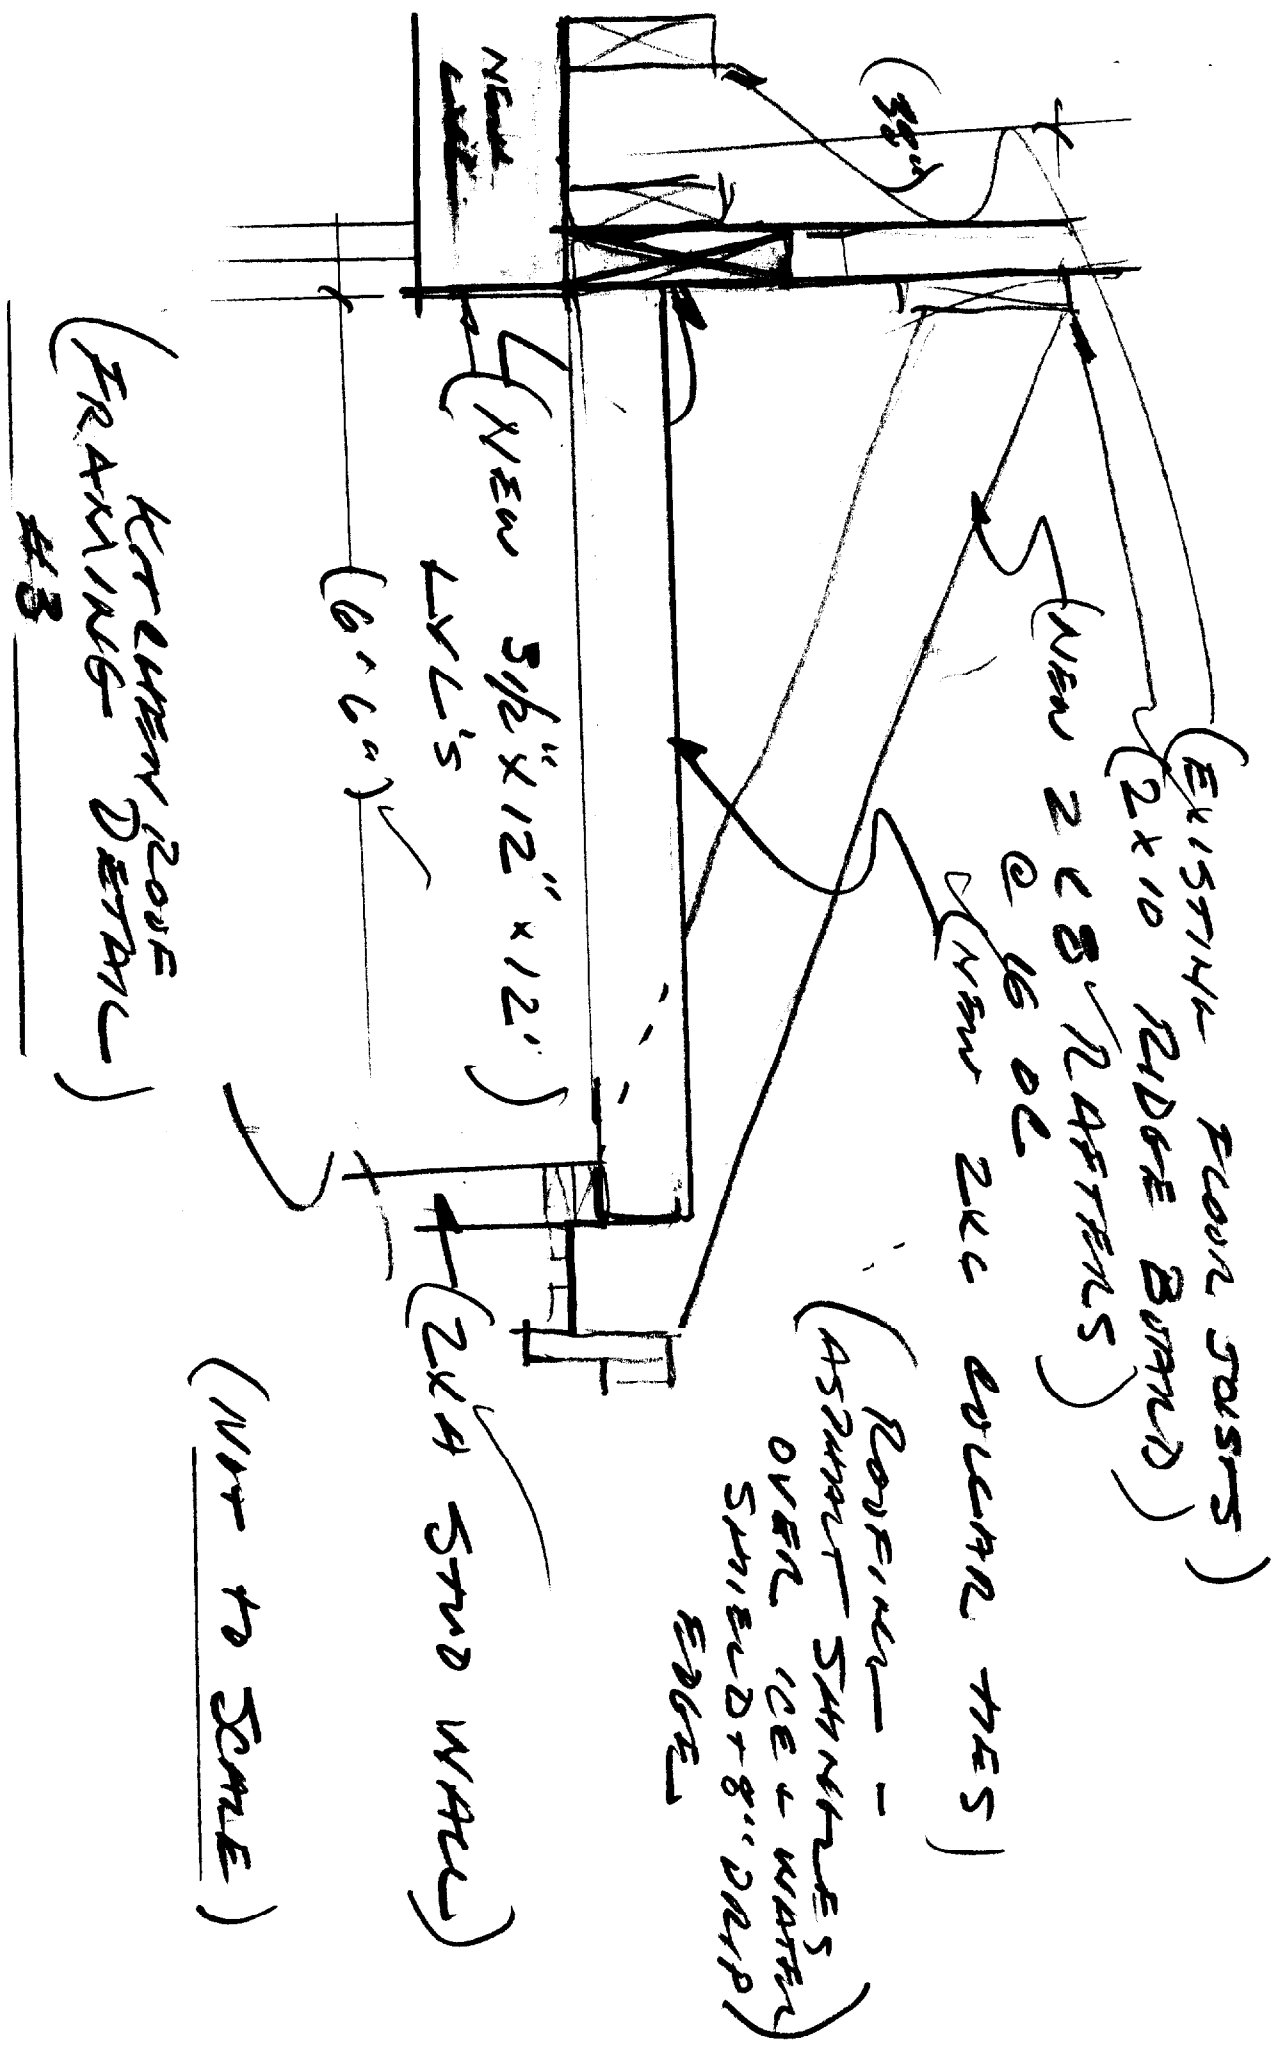 (EXISTING FLOOR JOISTS)
(2x10 RIDGE BOARD)
(NEW 2x8 RAFTERS
@ 16 OC)
(NEW 2x6 COLLAR TIES)
(ROOFING -
ASPHALT SHINGLES
OVER ICE & WATER
SHIELD + 8" DRIP
EDGE)
(38")
NEW
LVL
(NEW 3 1/2" x 12" x 12'
LVL'S)
(2x4 STUD WALL)
(6'6")
(NOT TO SCALE)
(KITCHEN ROOF
FRAMING DETAIL)
#3